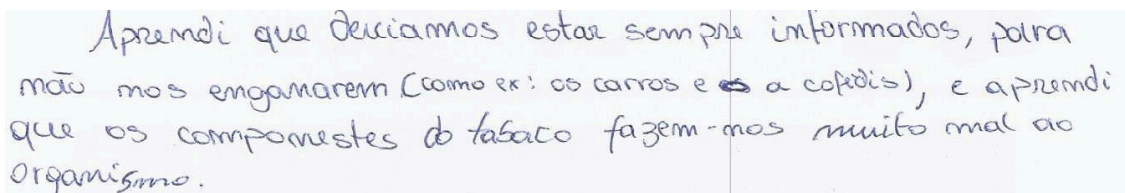 Aprendi que deviamos estar sempre informados, para
não nos enganarem (como ex: os carros e a cofidis), e aprendi
que os componestes do tabaco fazem-nos muito mal ao
organismo.